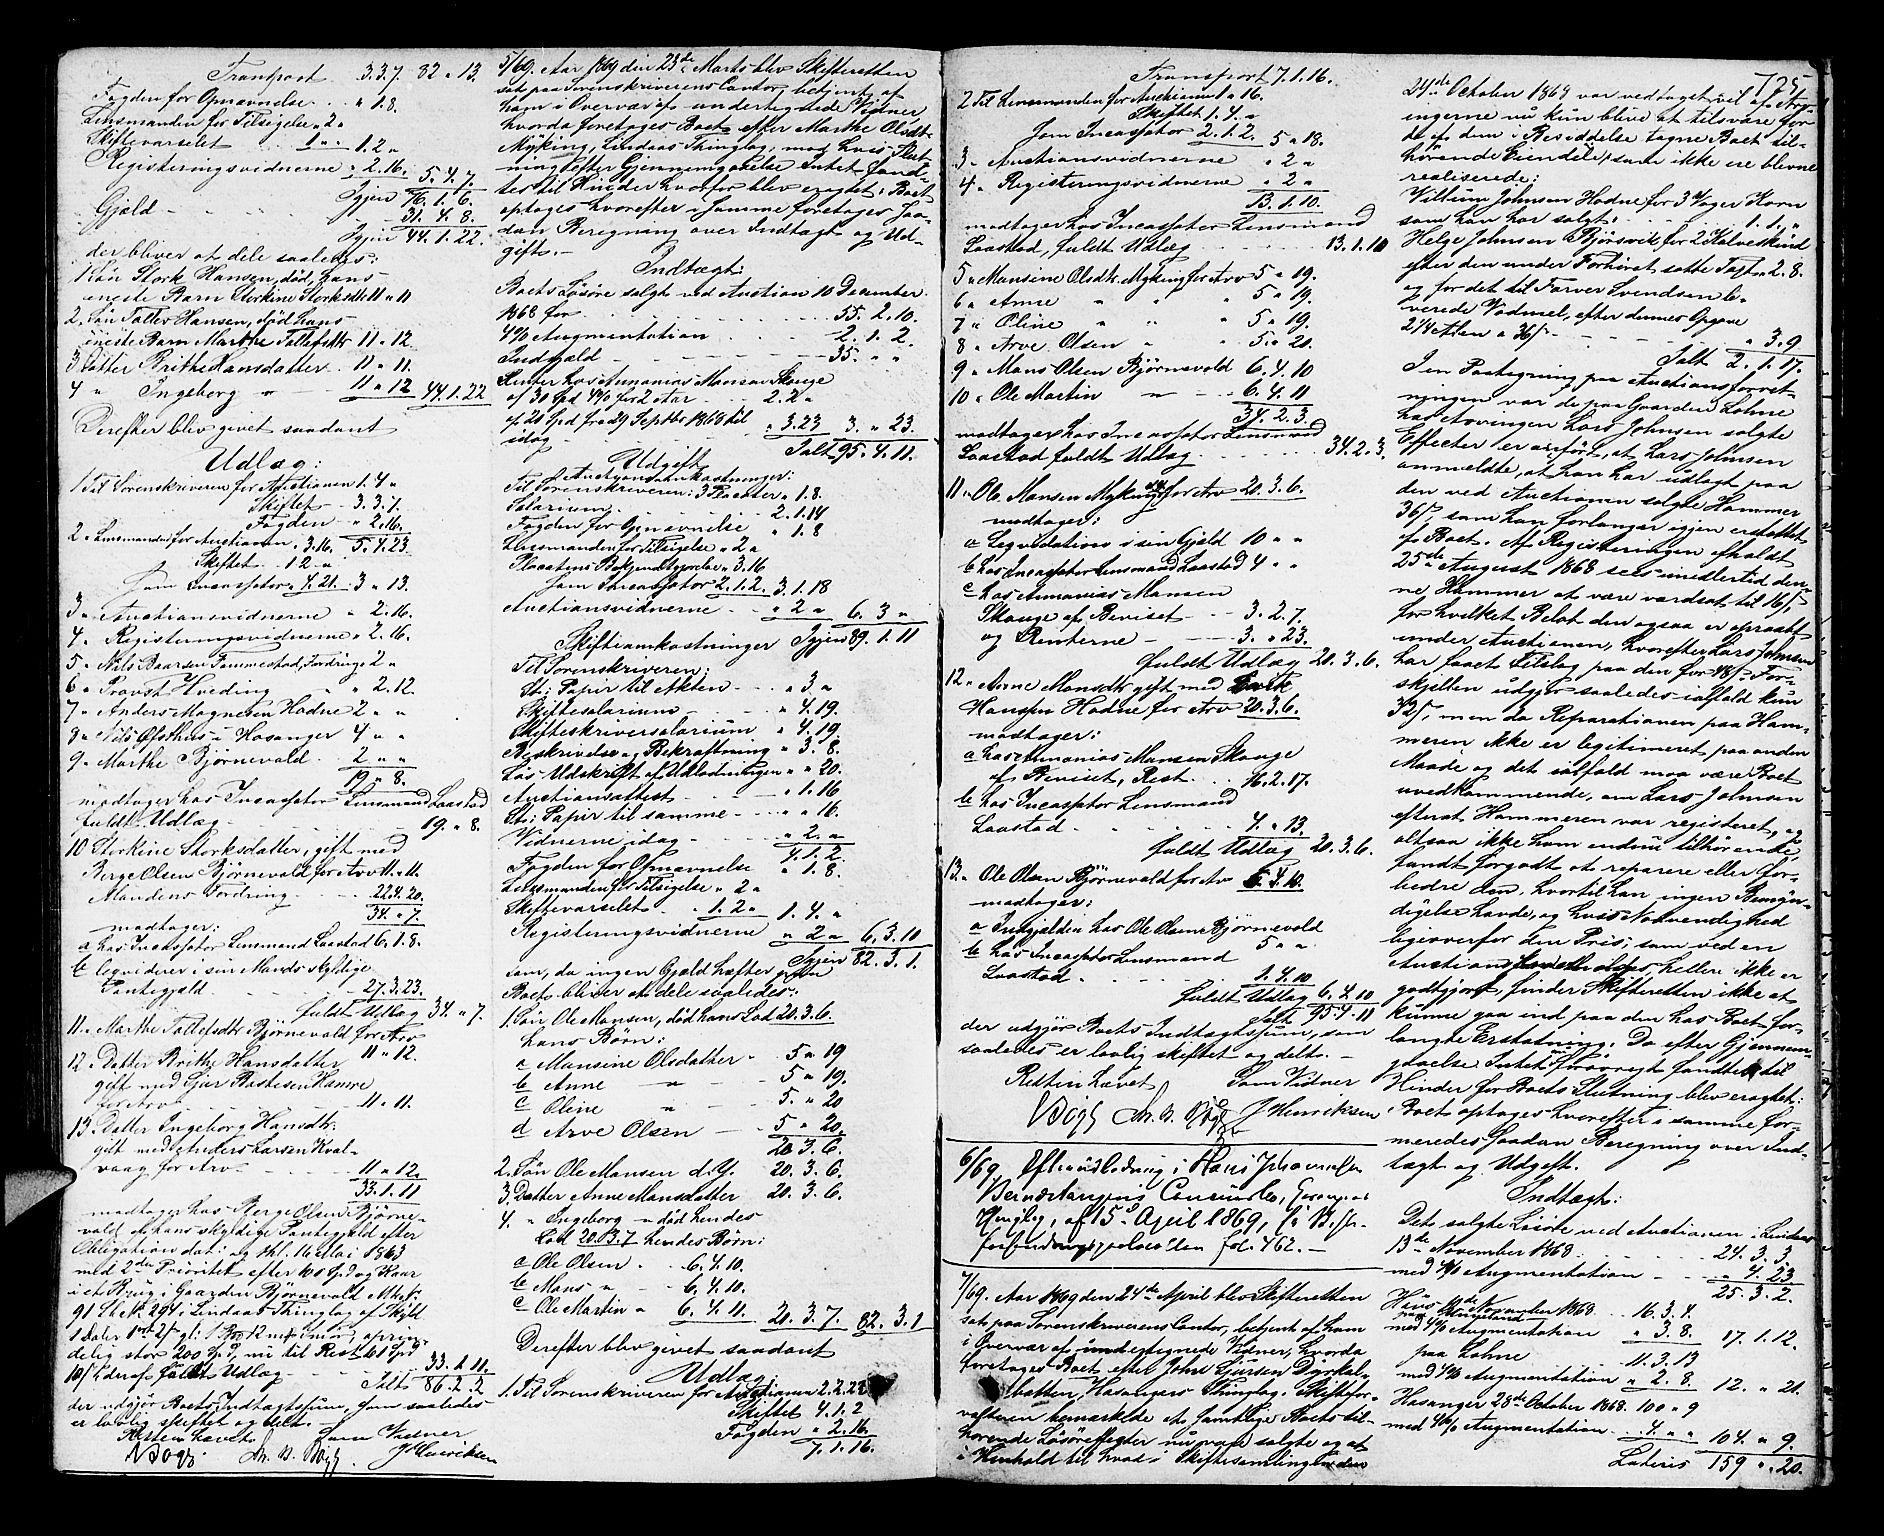 Transport 3.3.7. 82 " 13.
Fogden for Opnævnelse " 1.8.
Lensmanden for Tilsigelse " 2 "
Skiftevarselet 1 " " 1.2 "
Registeringsvidnerne " 2.16. 5.4.7.
Igjen 76.1.6.
Gjæld 31.4.8.
Igjen 44.1.22.
der bliver at dele saaledes:
1 Søn Stork Hansen, død, hans
eneste Barn Storkine Storksdtr 11 " 11
2. Søn Tollev Hansen, død hans
eneste Barn Marthe Tollefsdtr 11 " 12
3 Datter Brithe Hansdatter 11 " 11.
4 " Ingeborg " 11 " 12 44.1.22
Derefter blev givet saadant
Udlæg:
1 Til Sorenskriveren for Auctionen 1.4 "
Skiftet 3.3.7.
Fogden " 2.16.
2 " Lensmanden for Auctionen " 3.16. 5.4.23
Skiftet 1 2 "
som Incassator " 4.21. 3 " 13.
3 " Auctionsvidnerne " 2.16.
4 " Registeringsvidnerne " 2.16.
5 " Nils Baarsen Fammestad, Fordringe 2 "
6 " Provst Hveding " " 2.12.
7 " Anders Magnesen Hodne 2 " "
8 " Nils Øfsthus i Hosanger 4 " "
9 " Marthe Bjørnevold 2 " "
19 " 8.
modtager hos Incassator Lensmand Laastad
fuldt Udlæg 19. " 8.
10 Storkine Storksdatter, gift med
Berge Olsen Bjørnevold for Arv 11. " 11.
Mandens Fordring 22.4.20.
34. " 7.
modtager:
a hos Incassator Lensmand Laastad 6.1.8.
b leqviderer i sin Mands skyldige
Pantegjæld 27.3.23.
fuldt Udlæg 34. " 7.
11. " Marthe Tollefsdtr Bjørnevold for Arv
11 " 12.
12. Datter Brithe Hansdatter
gift med Sjur Hamre
for Arv 11. " 11.
13. Datter Ingeborg Hansdtr
gift med Anders Larsen Kval-
vaag for Arv 11 " 12.
33.1.11
modtager hos Berge Olsen Bjørne-
vold af hans skyldige Pantegjæld efter
Obligation dat: og thl. 16 Mai 1863
med 2den Prioritet efter 100 Spd og Kaar
i et Brug i Gaarden Bjørnevold Mtr. N:
91 i Lindaas Thinglag af Skyld
1 Daler
delig stor 200 Spd, nu til Rest 61 Spd
fuldt Udlæg 33.1.11.
Ialt 86.2.2
der udgjør Boets Indtægtssum, som saaledes
er lovlig skiftet og delt.
Retten hævet Som Vidner
Bøgh. M. B. Bøgh. J Henriksen
5/69. Aar 1869 den 23de Marts blev Skifteretten
sat paa Sorenskriverens Contor, betjent af
ham i Overvær af undertegnede Vidner
hvorda foretoges Boet efter Marthe Olsdtr
Myking, Lindaas Thinglag, mod hvis Slut-
ning efter Gjennemgaaelse Intet fand-
tes til Hinder hvorfor blev eragtet: Boet
optages hvorefter i samme foretoges saa-
dan Beregning over Indtægt og Ud-
gift.
Indtægt:
Boets Løsøre solgt ved Auction 10 December
1868 for 55.2.10.
4% Augmentation 2.1.2.
Indgjæld 35. " "
Renter hos Ananias Mansen Skauge
af 30 Spd 4% for 2 Aar 2.2 "
af 20 Spd fra 29 Septbr 1868 til
idag " 3.23 3. " 23.
Ialt 95.4.11.
Udgift
a Auctionsomkostninger:
Til Sorenskriveren: 3 Placater " 1.8.
Salarium 2.1.14
Fogden for Opnævnelse " 1.8
Lensmanden for Tilsigelse " 2 "
Placatens Bekjendtgjørelse " 3.16
som Incassator 2.1.2. 3.1.18
Auctionsvidnerne " 2 " 6.3 "
Skifteomkostninger Igjen 89.1.11
Til Sorenskriveren:
St: Papir til Akten " 3 "
Skiftesalarium " 4.19.
Skifteskriversalarium " 4.19.
Beskrivelse og Bekræftning " 3.8.
Løs Udskrift af Udlodningen " " 20.
Auctionsattest " 1.16
St: Papir til samme " " 16.
Vidnerne idag " 2. "
4.1.2.
Fogden for Opnævnelse " 1.8.
Lensmanden for Tilsigelse " 2 "
Skiftevarselet 1.2 " 1.4. "
Registeringsvidnerne " 2 " 6.3.10
Igjen 82.3.1.
som, da ingen Gjæld hæfter paa
Boet bliver at dele saaledes:
1. Søn Ole Mansen, død hans Lod 20.3.6.
hans Børn:
a Mansine Olsdatter 5 " 19
b Anne " 5 " 19.
c Oline " 5. " 20
d Arve Olsen 5 " 20.
20.3.6.
2. Søn Ole Mansen d.Y. 20.3.6.
3. Datter Anne Mansdatter 20.3.6.
4. " Ingeborg " død hendes
Lod 20.3.7 hendes Børn:
a Ole Olsen 6.4.10.
b Mans " 6.4.10.
c Ole Martin " 6.4.11. 20.3.7. 82.3.1
Derefter blev givet saadant
Udlæg:
1. Til Sorenskriveren for Auctionen 2.2.22
Skiftet 4.1.2
Fogden " 2.16.
7.1.16.
Transport 7.1.16.
2 Til Lensmanden for Auctionen 1 " 16.
Skiftet 1.4. "
som Incassator 2.1.2. 5 " 18.
3 " Auctionsvidnerne " 2 "
4 " Registeringsvidnerne " 2 "
13.1.10.
modtager hos Incassator Lensmand
Laastad, fuldt Udlæg 13.1.10
5 " Mansine Olsdtr. Myking for Arv 5 " 19.
6 " Anne " " " 5 " 19.
7 " Oline " " " 5 " 19.
8 " Arve Olsen " " 5. " 20.
9 " Mans Olsen Bjørnevold 6.4.10
10 " Ole Martin " " 6.4.11
34.2.3.
modtager hos Incassator Lensmand
Laastad fuldt Udlæg 34.2.3.
11 " Ole Mansen Myking d.Y. for Arv 20.3.6.
modtager:
a Leqvidation i sin Gjæld 10 " "
b hos Incassator Lensmand Laastad 4 " "
c hos Annanias Mansen
Skauge af Beviset 3.2.7.
og Renterne 3. " 23.
fuldt Udlæg 20.3.6.
12 " Anne Mansdtr gift med
Hansen Hodne for Arv 20.3.6.
modtager:
a hos Annanias Mansen Skauge
af Beviset, Rest 16.2.17.
b hos Incassator Lensmand
Laastad 4. " 13.
fuldt Udlæg 20.3.6.
13. " Ole Olsen Bjørnevold for Arv 6.4.10.
modtager:
a Indgjælden hos Ole Olsen Bjørnevold
5 " "
b hos Incassator Lensmand
Laastad 1.4.10
fuldt Udlæg 6.4.10
Ialt 95.4.11
der udgjør Boets Indtægtssum, som
saaledes er lovlig skiftet og delt. —
Retten hævet Som Vidner
Bøgh M. B. Bøgh J Henriksen
6/69. Efterudlodning i Hans Johannesen
Bernestangens Concursbo, Evanger
Thinglag, af 15de April 1869, se B. for
forhandlingsprotocollen fol. 462. —
7/69. Aar 1869 den 24de April blev Skifteretten
sat paa Sorenskriverens Contor, betjent af ham
i Overvær af undertegnede Vidner, hvorda
foretoges Boet efter John Sjursen Dyrkol-
botten, Hosangers Thinglag. Skiftefor-
valteren bemærkede at samtlige Boets til-
hørende Løsøreeffecter nu vare solgte og at
i Henhold til hvad i Skiftesamlingen den
725
29de October 1867 var vedtaget vil af Arv-
ingerne nu kun blive at tilsvare for
de af dem i Besiddelse tagne Boet til-
hørende Eiendele, som ikke ere blevne
realiserede:
Villum Johnsen Hodne for 3 Voger Korn
som han har solgt 1.1. "
Helge Johnsen Bjørsvik for 2 Kalveskind
efter den under Forhøret satte Taxt " 2.8.
og for det til Farver Svendsen le-
verede Vadmel, efter dennes Opgave
2 1/4 Alen a 36 s " 3.9
Ialt 2.1.17.
I en Paategning paa Auctionsforret-
ningen var de paa Gaarden Lohne
hos Arvingen Lars Johnsen solgte
Effecter er anført, at Lars Johnsen
anmeldte, at han har udlagt paa
den ved Auctionen solgte Hammer
36 s, som han forlanger igjen erstattet
af Boet. Af Registeringen afholdt
25de August 1868 sees imidlertid den-
ne Hammer at være værdsat til 16 s,
for hvilket Beløb den ogsaa er opraabt
under Auctionen, hvorefter Lars Johnsen
har faaet Tilslag paa den for 48 s. For-
skjellen udgjør saaledes ialfald kun
32 s, men da Reparationen paa Ham-
meren ikke er legitimeret paa anden
Maade og det ialfald maa være Boet
uvedkommende, om Lars Johnsen
efterat Hammeren var registeret, og
altsaa ikke ham endnu tilhørende,
fandt forgodt at reparere eller for-
bedre den, hvortil han ingen Bemyn-
digelse havde, og hvis Nødvendighed
ligeoverfor den Pris, som ved en
Auction, heller ikke er
godtgjort, finder Skifteretten ikke at
kunne gaa ind paa den hos Boet for-
langte Erstatning. Da efter Gjennem-
gaaelse Intet forøvrigt fandtes til
Hinder for Boets Slutning blev eragtet:
Boet optages hvorefter i samme for-
meredes saadan Beregning over Ind-
tægt og Udgift.
Indtægt:
Det solgte Løsøre ved Auctionen i Lindaas
13de November 1868 24.3.3.
med 4% Augmentation " 4.23
25.3.2.
Hans November 1868 16.3.4.
med 4% Augmentation " 3.8. 17.1.12.
paa Lohne 11.3.13
med 4% Augmentation " 2.8. 12. " 21.
Hosanger 28de October 1868. 100 " 9
med 4% Augmentation 4. " " 104. " 9.
Lateris 159 " " 20.